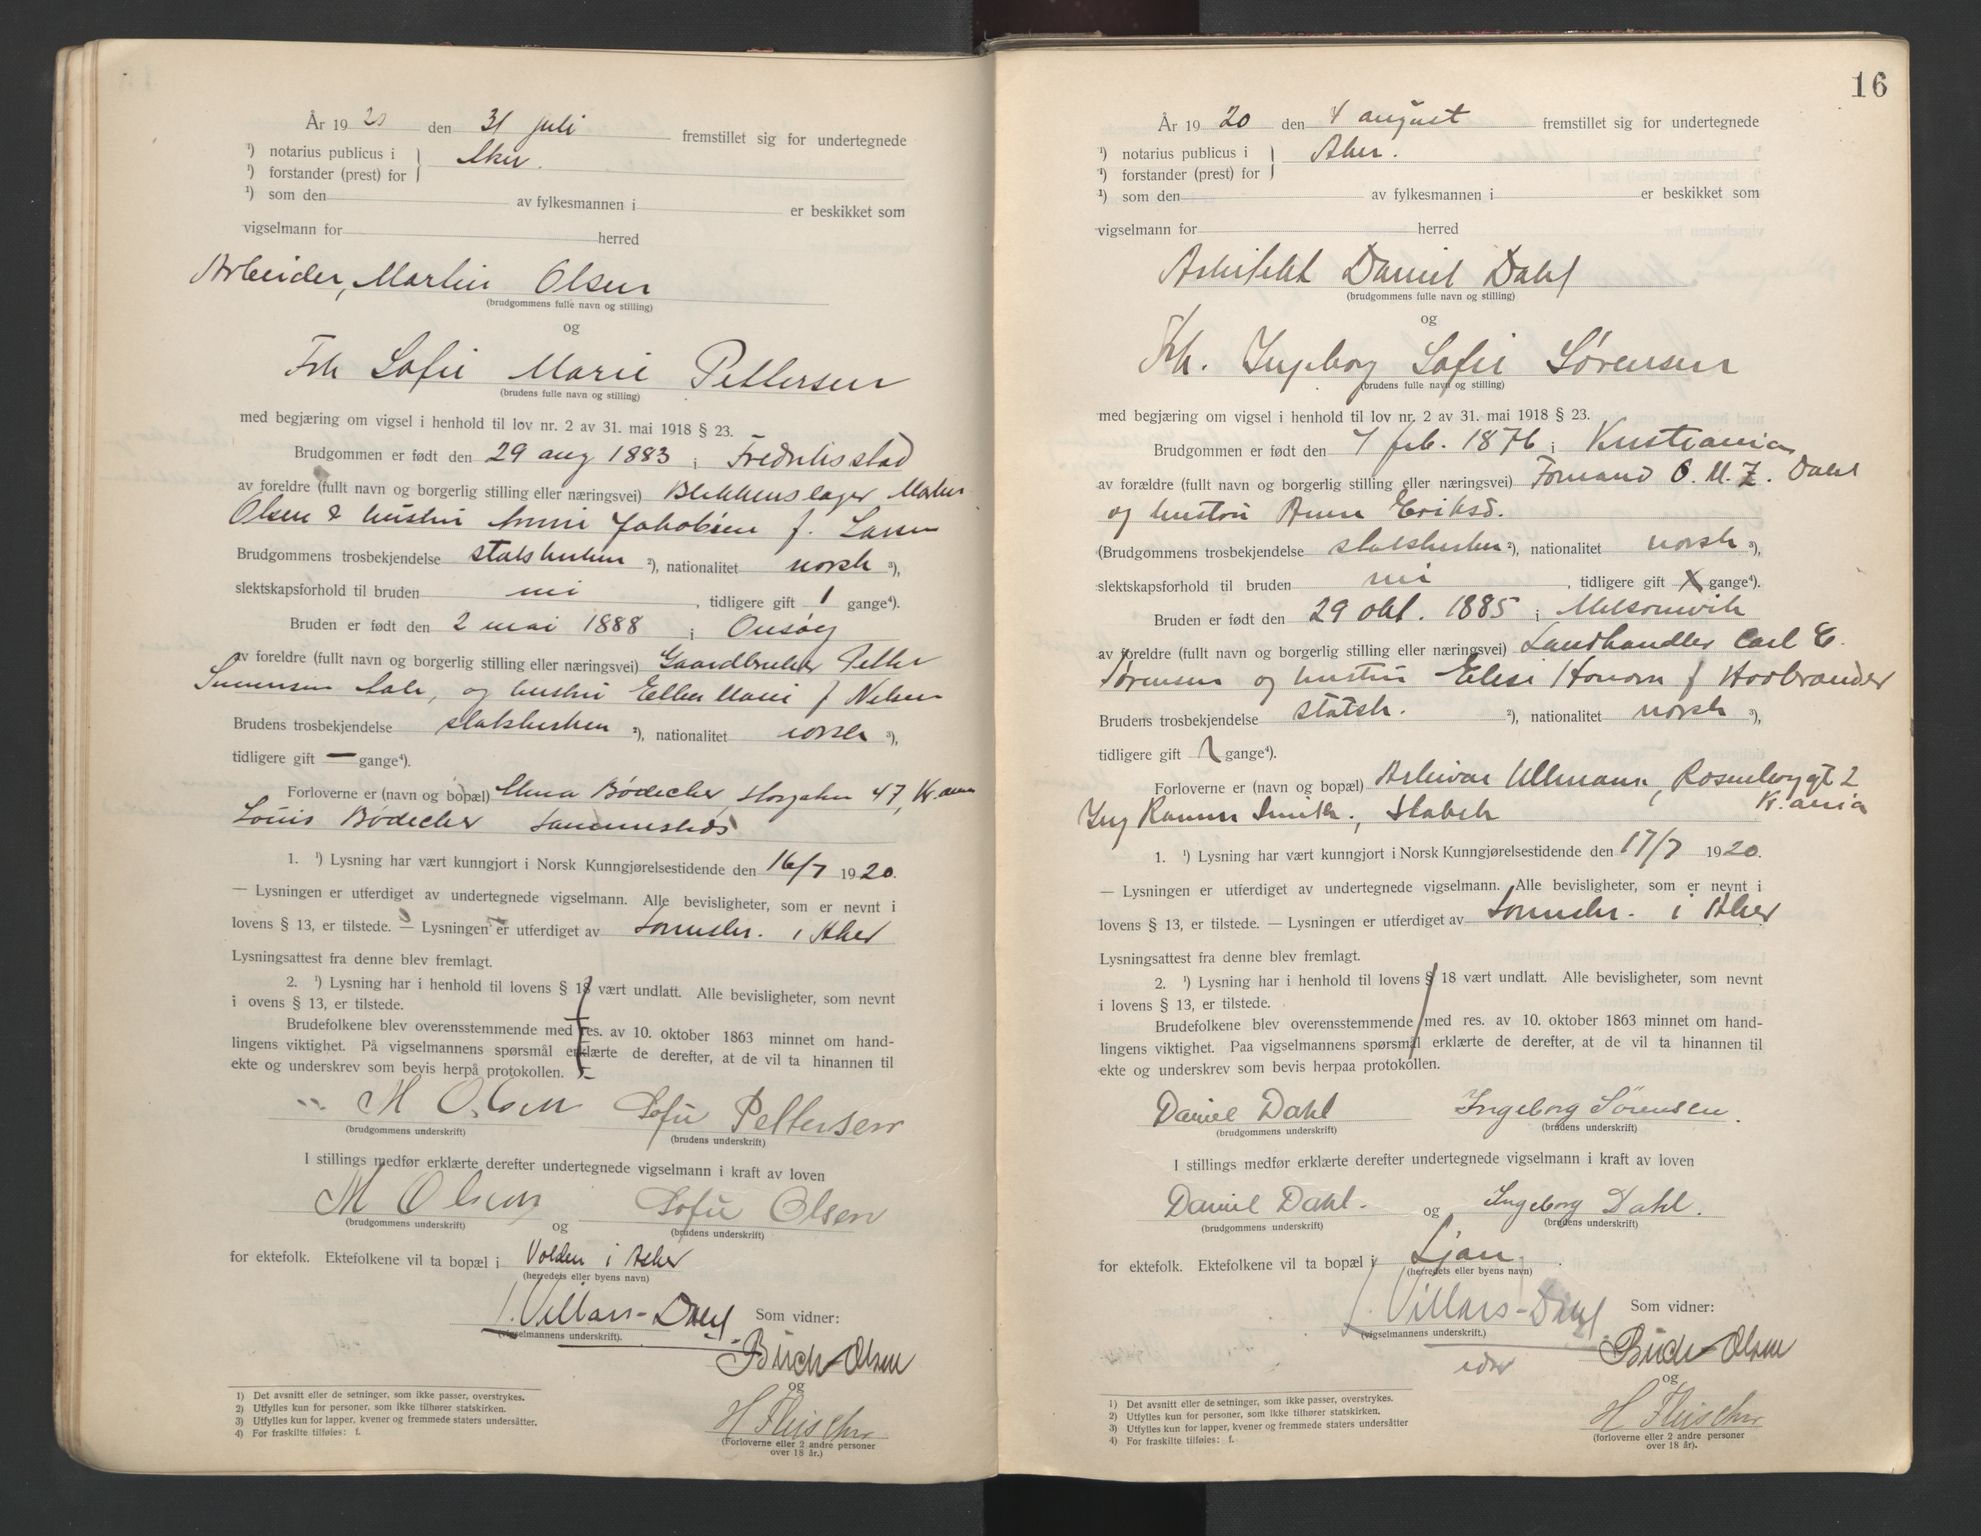 År 1920 den 31 juli fremstillet sig for undertegnede
¹) notarius publicus i } Aker.
¹) forstander (prest) for
¹) som den av fylkesmannen i er beskikket som
vigselmann for herred
Arbeider, Martin Olsen
(brudgommens fulle navn og stilling)
og
Frk Sofie Marie Pettersen
(brudens fulle navn og stilling)
med begjæring om vigsel i henhold til lov nr. 2 av 31. mai 1918 § 23.
Brudgommen er født den 29 aug 1883 i Fredriksstad
av foreldre (fullt navn og borgerlig stilling eller næringsvei) Blikkenslager Martin
Olsen & hustru Annie Jakobsen f. Larsen
Brudgommens trosbekjendelse statskirken ²), nationalitet norsk ³),
slektskapsforhold til bruden nei , tidligere gift 1 gange⁴).
Bruden er født den 2 mai 1888 i Onsøy
av foreldre (fullt navn og borgerlig stilling eller næringsvei) Gaardbruker Petter
og hustru Ellen Marie f Nilsen
Brudens trosbekjendelse statskirken ²), nationalitet norsk ³),
tidligere gift — gange⁴).
Forloverne er (navn og bopæl) Bødecker, Storgaten 47, Kr.ania
Louis Bødecker sammesteds
1. ¹) Lysning har vært kunngjort i Norsk Kunngjørelsestidende den 16/7 1920.
— Lysningen er utferdiget av undertegnede vigselmann. Alle bevisligheter, som er nevnt i
lovens § 13, er tilstede. — Lysningen er utferdiget av Sorenskr. i Aker
Lysningsattest fra denne blev fremlagt.
2. ¹) Lysning har i henhold til lovens § 18 vært undlatt. Alle bevisligheter, som nevnt
i ovens § 13, er tilstede.
Brudefolkene blev overensstemmende med res. av 10. oktober 1863 minnet om hand-
lingens viktighet. På vigselmannens spørsmål erklærte de derefter, at de vil ta hinannen til
ekte og underskrev som bevis herpå protokollen.
M Olsen Sofie Pettersen
(brudgommens underskrift) (brudens underskrift)
I stillings medfør erklærte derefter undertegnede vigselmann i kraft av loven
M Olsen og Sofie Olsen
(brudgommens underskrift) (brudens underskrift)
for ektefolk. Ektefolkene vil ta bopæl i Volden i Aker
(herredets eller byens navn)
J. Villars-Dahl Som vidner:
(vigselmannens underskrift).
Buch-Olsen
og
H Fleischer
(Forloverne eller 2 andre personer
over 18 år.)
1) Det avsnitt eller de setninger, som ikke passer, overstrykes.
2) Utfylles kun for personer, som ikke tilhører statskirken.
3) Utfylles kun for lapper, kvener og fremmede staters undersåtter.
4) For fraskilte tilføies: f.
16
År 1920 den 4 august fremstillet sig for undertegnede
¹) notarius publicus i } Aker.
¹) forstander (prest) for
¹) som den av fylkesmannen i er beskikket som
vigselmann for herred
Arkitekt Daniel Dahl
(brudgommens fulle navn og stilling)
og
Frk. Ingeborg Sofie Sørensen
(brudens fulle navn og stilling)
med begjæring om vigsel i henhold til lov nr. 2 av 31. mai 1918 § 23.
Brudgommen er født den 7 feb. 1876 i Kristiania
av forældre (fullt navn og borgerlig stilling eller næringsvei) Formand O. M. Z. Dahl
og hustru Anne Eriksd.
(Brudgommens trosbekjendelse statskirken ²), nationalitet norsk ³),
slektskapsforhold til bruden nei , tidligere gift gange⁴).
Bruden er født den 29 okt. 1885 i Melsomvik
av foreldre (fullt navn og borgerlig stilling eller næringsvei) Landhandler Carl E.
Sørensen og hustru Elise f
Brudens trosbekjendelse statsk. ²), nationalitet norsk ³),
tidligere gift gange⁴).
Forloverne er (navn og bopæl) Arkivar Ullmann, Rosenborggt 2
Kr.ania
Ing Smith, Stabek
1. ¹) Lysning har vært kunngjort i Norsk Kunngjørelsestidende den 17/7 1920.
— Lysningen er utferdiget av undertegnede vigselmann. Alle bevisligheter, som er nevnt i
lovens § 13, er tilstede. — Lysningen er utferdiget av Sorenskr. i Aker
Lysningsattest fra denne blev fremlagt.
2. ¹) Lysning har i henhold til lovens § 18 vært undlatt. Alle bevisligheter, som nevnt
i lovens § 13, er tilstede.
Brudefolkene blev overensstemmende med res. av 10. oktober 1863 minnet om hand-
lingens viktighet. Paa vigselmannens spørsmål erklærte de derefter, at de vil ta hinannen til
ekte og underskrev som bevis herpaa protokollen.
Daniel Dahl Ingeborg Sørensen.
(brudgommens underskrift) (brudens underskrift)
I stillings medfør erklærte derefter undertegnede vigselmann i kraft av loven
Daniel Dahl. og Ingeborg Dahl.
(brudgommens underskrift) (brudens underskrift)
for ektefolk. Ektefolkene vil ta bopæl i Ljan.
(herredets eller byens navn)
J. Villars-Dahl Som vidner:
(vigselmannens underskrift.)
Buch-Olsen
og
H Fleischer
(forloverne eller 2 andre personer
over 18 år).
1) Det avsnitt eller de setninger, som ikke passer, overstrykes.
2) Utfylles kun for personer, som ikke tilhører statskirken.
3) Utfylles kun for lapper, kvener og fremmede staters undersåtter
4) For fraskilte tilføies: f.